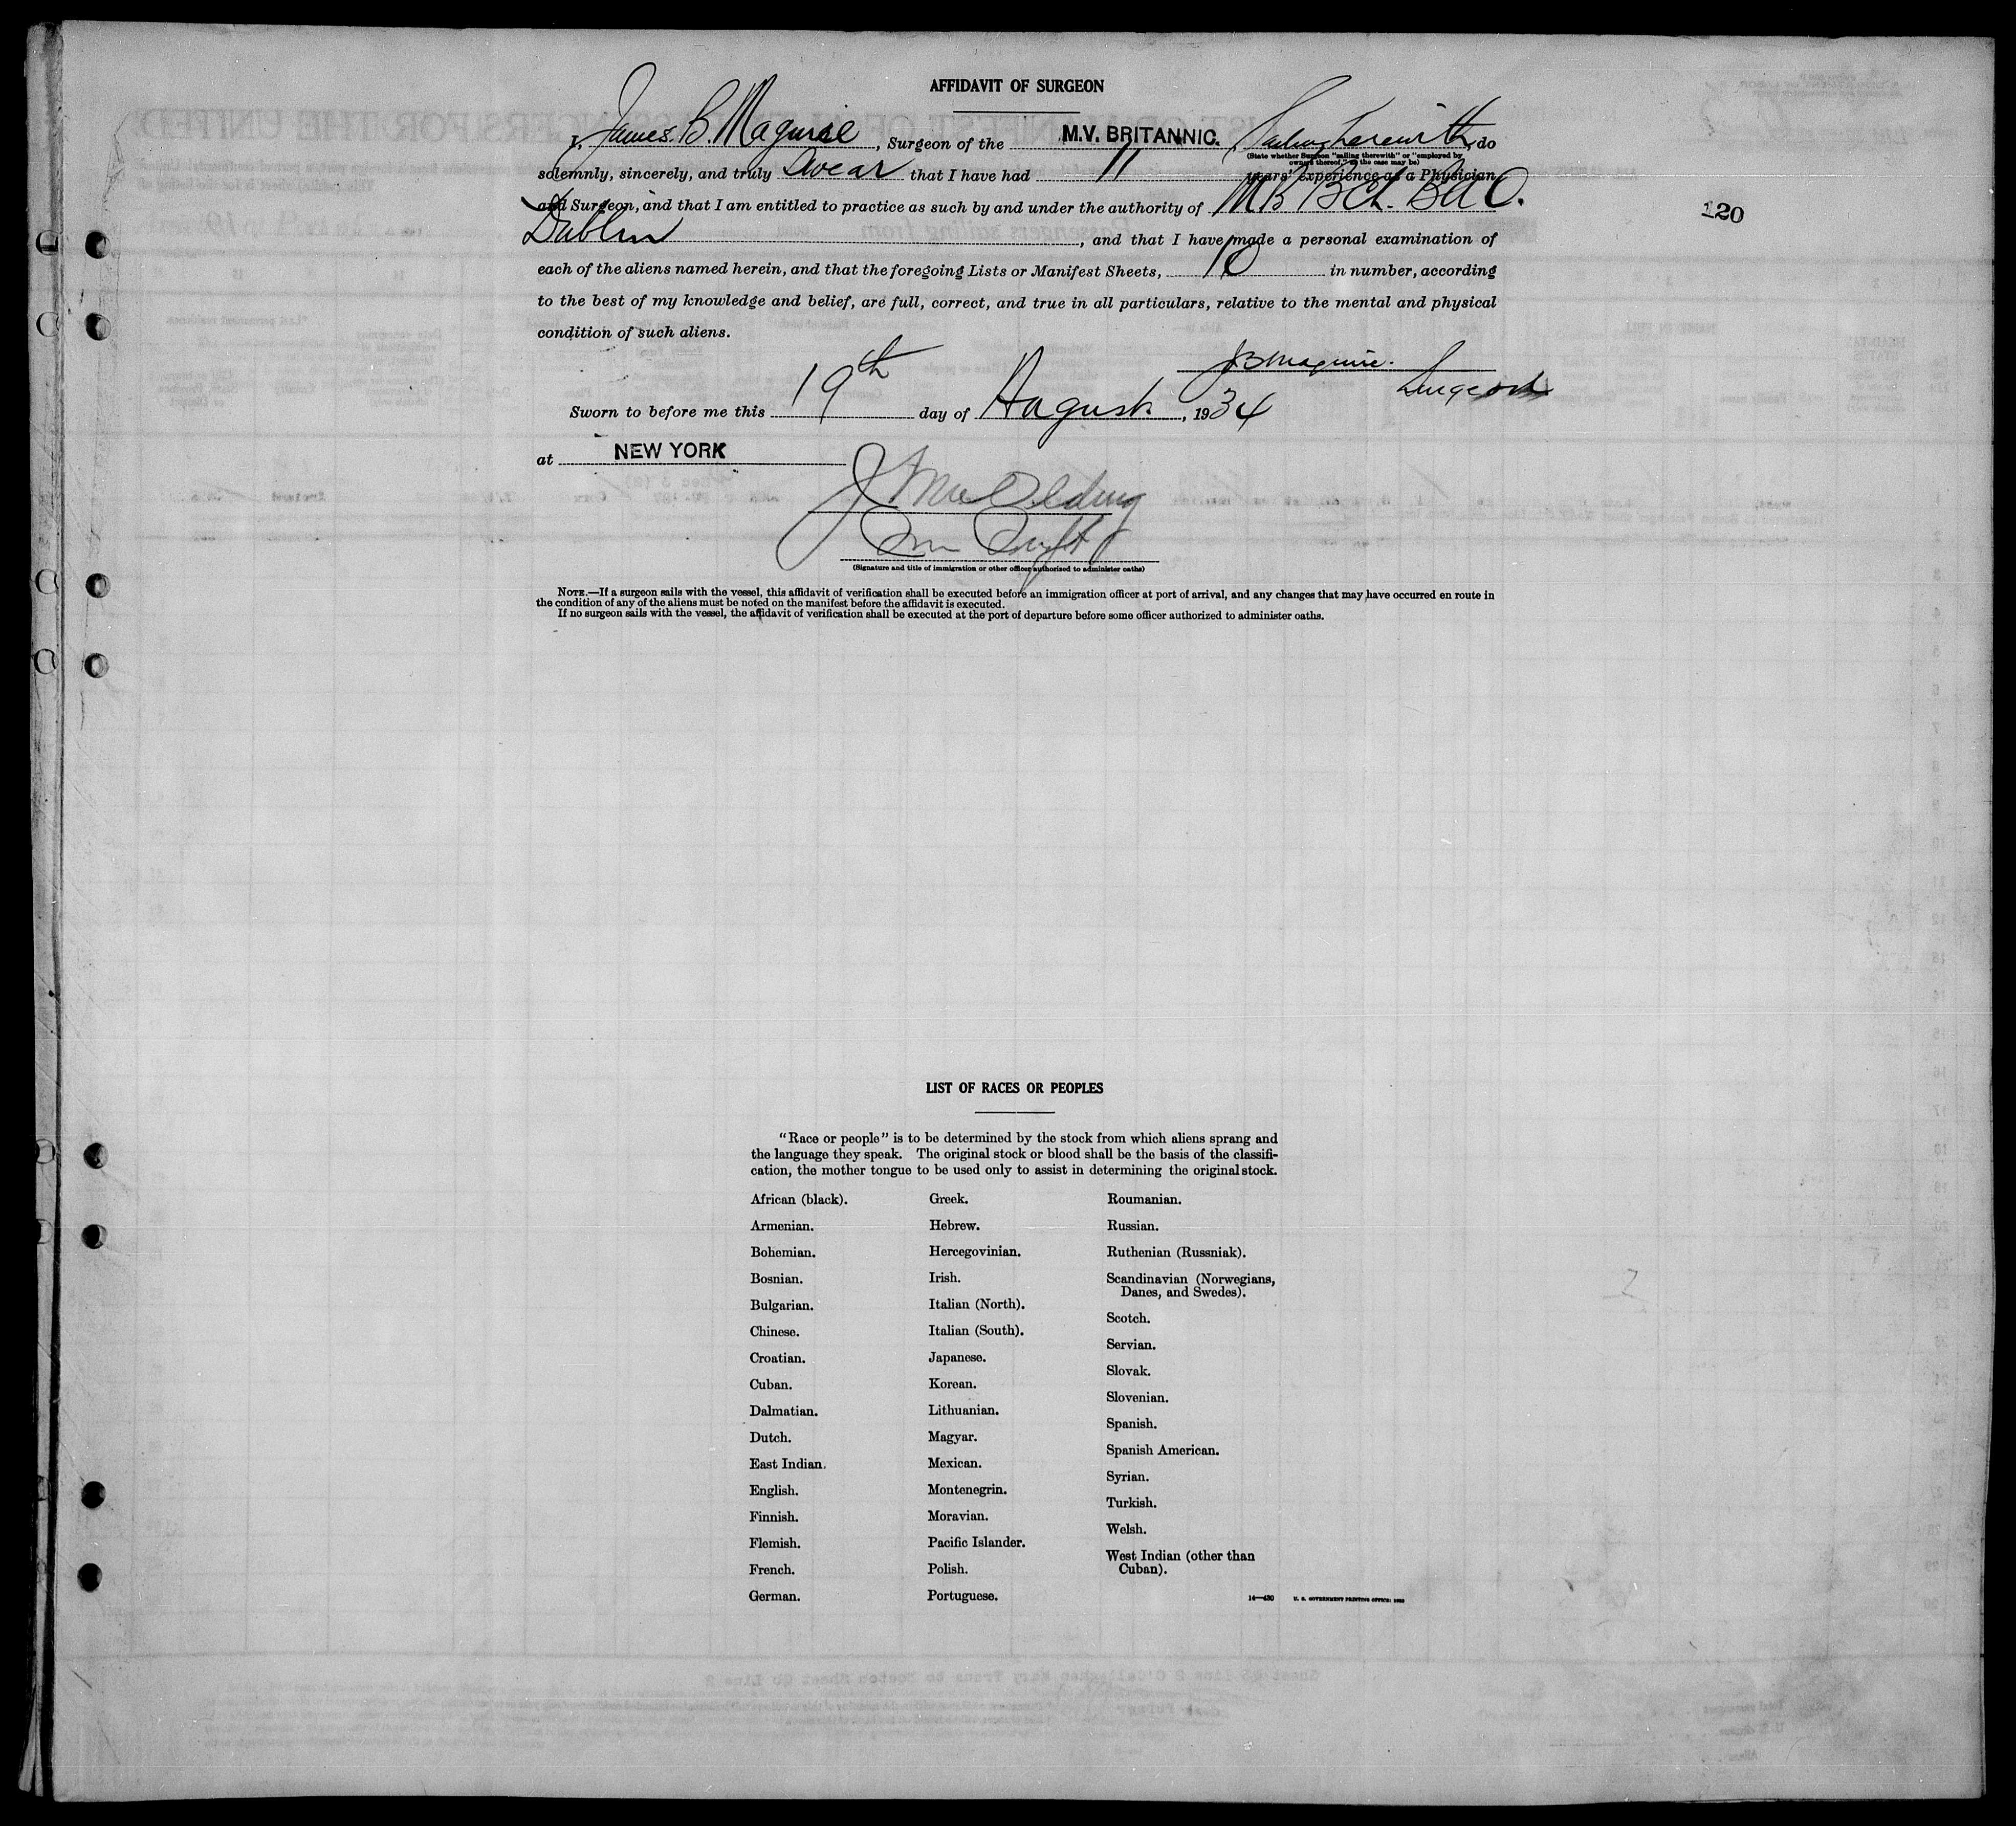 AFFIDAVIT OF SURGEON
I, James B. Maguire, Surgeon of the M.V. BRITANNIC. Sailing therewith, do
(State whether Surgeon "sailing therewith" or "employed by
owners thereof," as the case may be)
solemnly, sincerely, and truly swear that I have had 11 years' experience as a Physician
and Surgeon, and that I am entitled to practice as such by and under the authority of MB BCh. BAO.
Dublin, and that I have made a personal examination of
each of the aliens named herein, and that the foregoing Lists or Manifest Sheets, 10 in number, according
to the best of my knowledge and belief, are full, correct, and true in all particulars, relative to the mental and physical
condition of such aliens.
120
JB Maguire.
Surgeon
Sworn to before me this 19th day of August, 1934
at NEW YORK
(Signature and title of immigration or other officer authorized to administer oaths)
NOTE.—If a surgeon sails with the vessel, this affidavit of verification shall be executed before an immigration officer at port of arrival, and any changes that may have occurred en route in
the condition of any of the aliens must be noted on the manifest before the affidavit is executed.
If no surgeon sails with the vessel, the affidavit of verification shall be executed at the port of departure before some officer authorized to administer oaths.
LIST OF RACES OR PEOPLES
"Race or people" is to be determined by the stock from which aliens sprang and
the language they speak. The original stock or blood shall be the basis of the classifi-
cation, the mother tongue to be used only to assist in determining the original stock.
African (black).
Armenian.
Bohemian.
Bosnian.
Bulgarian.
Chinese.
Croatian.
Cuban.
Dalmatian.
Dutch.
East Indian.
English.
Finnish.
Flemish.
French.
German.
Greek.
Hebrew.
Hercegovinian.
Irish.
Italian (North).
Italian (South).
Japanese.
Korean.
Lithuanian.
Magyar.
Mexican.
Montenegrin.
Moravian.
Pacific Islander.
Polish.
Portuguese.
Roumanian.
Russian.
Ruthenian (Russniak).
Scandinavian (Norwegians,
Danes, and Swedes).
Scotch.
Servian.
Slovak.
Slovenian.
Spanish.
Spanish American.
Syrian.
Turkish.
Welsh.
West Indian (other than
Cuban).
14—430 U. S. GOVERNMENT PRINTING OFFICE: